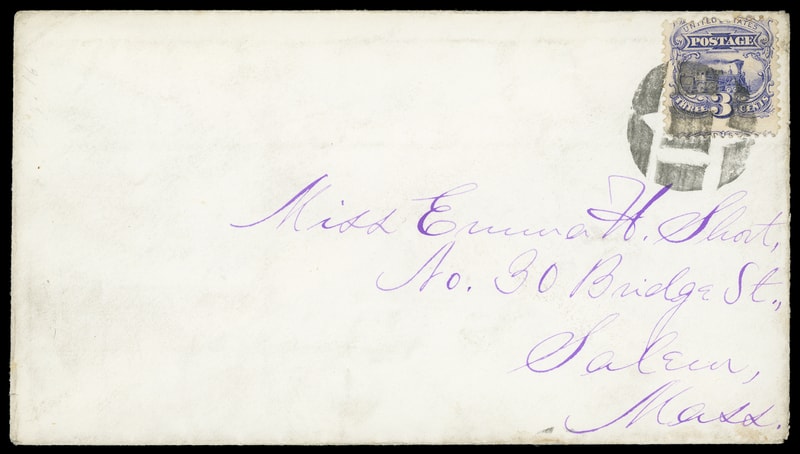 UNITED STATES
POSTAGE
THREE 3 CENTS
Miss Emma H. Short,
No. 30 Bridge St.,
Salem,
Mass.